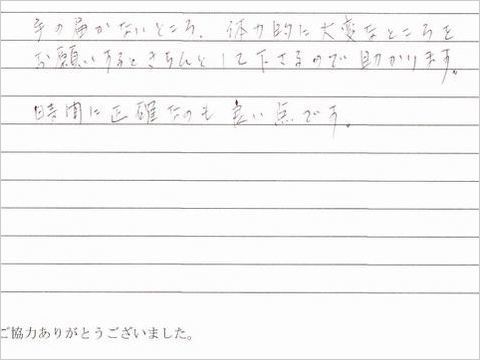 手の届かないところ、体力的に大変なところを
お願いするときちんとして下さるので助かります。
時間に正確なのも良い点です。
ご協力ありがとうございました。